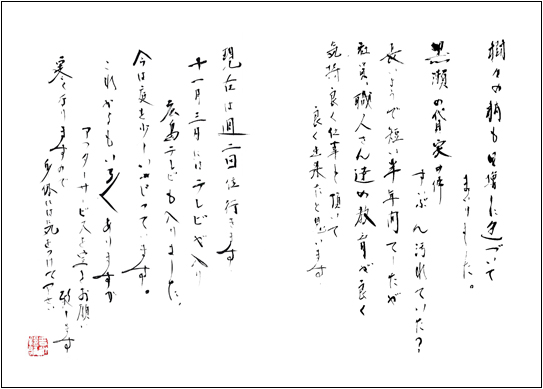 樹々の梢も日増しに色づいて
まいりました。
黒瀬の貸家の件
ずいぶん汚れていた?
長いようで短い半年間でしたが
社員、職人さん達の教育が良く
気持良く仕事を頂いて
良く出来たと思います
現在は週二回位行きます
十一月三日にはテレビが入り
広島テレビも入りました。
今は庭を少しいじっています。
これからもいろ〱ありますが
アフターサービスを宜しくお願い
致します
寒くなりますので
お体には気をつけて下さい